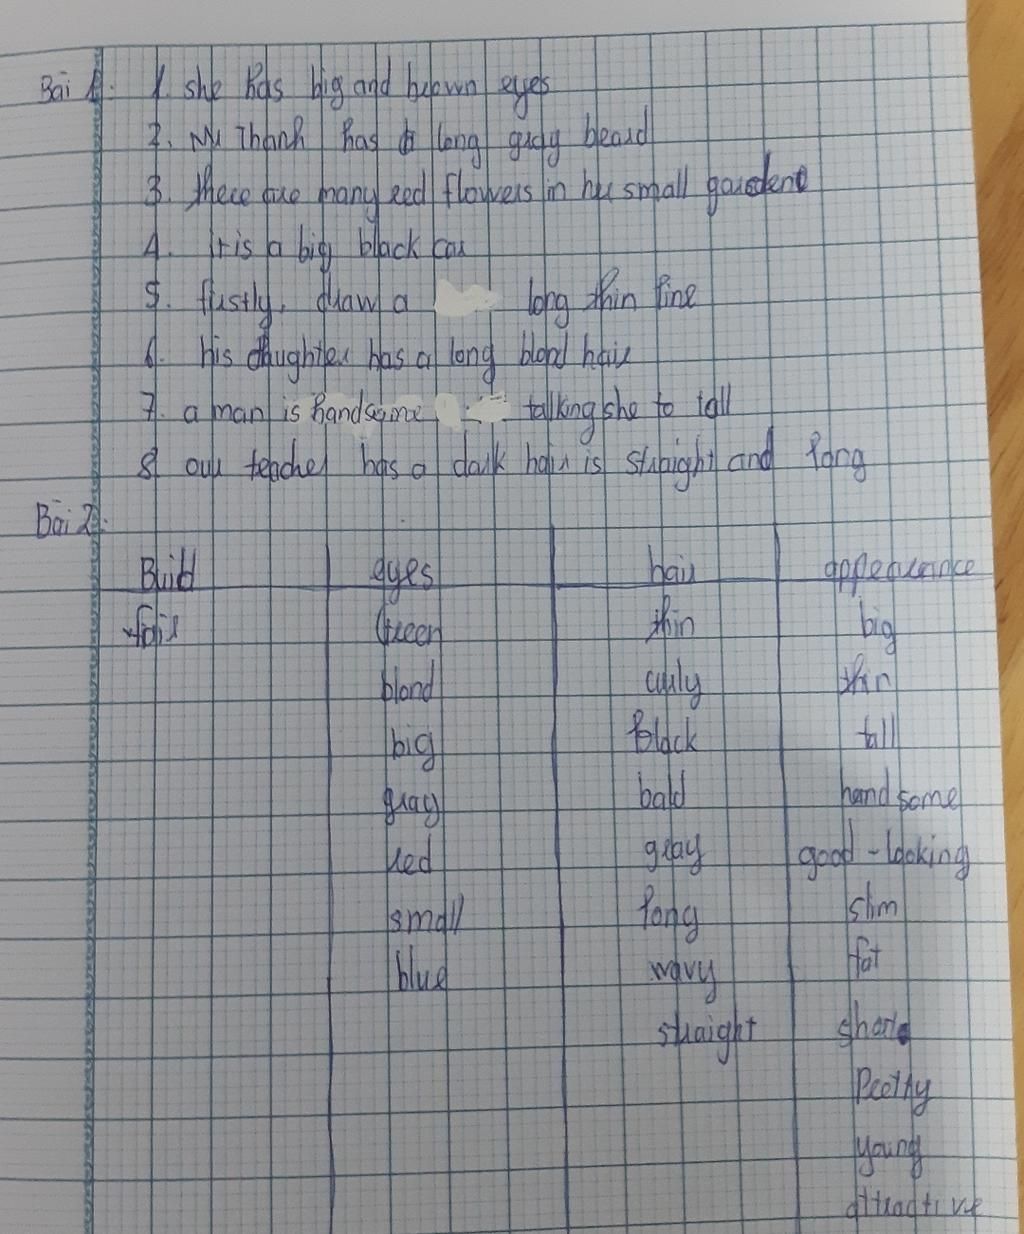 Bài 1: 1. she has big and brown eyes
2. Mr Thanh has long gray beard
3. there are many red flowers in her small garden
4. it is a big black car
5. firstly, draw a long thin line
6. his daughter has a long blond hair
7. a man is handsome talking she to tall
8 our teacher has a dark hair is straight and long
Bài 2:
Build eyes hair appearance
fair Green thin big
blond curly thin
big Black tall
gray bald handsome
red gray good-looking
small long slim
blue wavy fat
straight short
Pretty
young
attractive